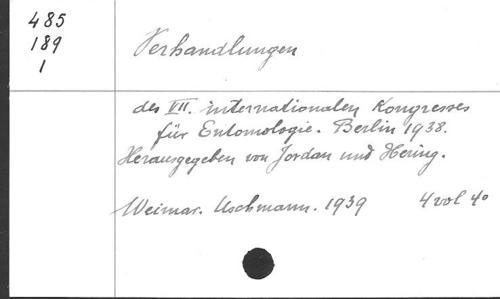 485
189
1
Verhandlungen
des VII. internationalen Kongresses
für Entomologie. Berlin 1938.
Herausgegeben von Jordan und Hering.
Weimar. Uschmann. 1939 4 vol 4o